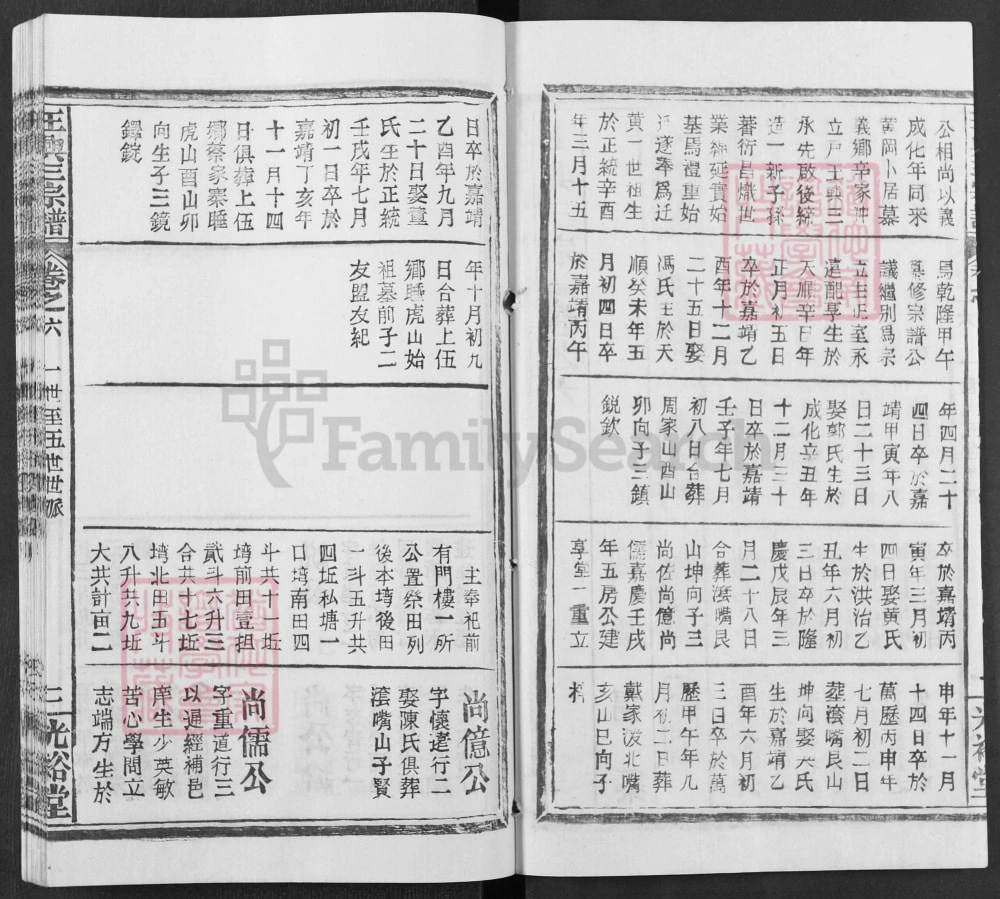 公相尚以義
成化年同來
黃岡卜居慕
義鄉辛家沖
立戶王興三
永先啟後統
造一新子孫
蕃衍昌熾世
業綿延實始
基焉禮重始
遷遂奉爲迁
黃一世祖生
於正統辛酉
年三月十五
焉乾隆甲午
纂修宗譜公
議繼別爲宗
立主正室永
遠配享生於
天順辛巳年
正月初五日
卒於嘉靖乙
酉年十二月
二十五日娶
馮氏生於天
順癸未年五
月初四日卒
於嘉靖丙午
年四月二十
四日卒於嘉
靖甲寅年八
日二十三日
娶郭氏生於
成化辛丑年
十二月三十
日卒於嘉靖
壬子年七月
初八日合葬
周家山酉山
卯向子三鎮
銳欽
卒於嘉靖丙
寅年三月初
四日娶黃氏
生於洪治乙
丑年六月初
三日卒於隆
慶戊辰年三
月二十八日
合葬滾嘴艮
山坤向子三
尚佐尚億尚
儒嘉慶壬戌
年五房公建
享堂一重立
申年十一月
十四日卒於
萬歷丙申年
七月初二日
葬滾嘴艮山
坤向娶吳氏
生於嘉靖乙
酉年六月初
三日卒於萬
歷甲午年九
月初二日葬
戴家泼北嘴
亥山巳向子
日卒於嘉靖
乙酉年九月
二十日娶董
氏生於正統
壬戌年七月
初一日卒於
嘉靖丁亥年
十一月十四
日俱葬上伍
鄉蔡家寨睡
虎山酉山卯
向生子三鏡
鐸錠
年十月初九
日合葬上伍
鄉睡虎山始
祖墓前子二
友盟友紀
主奉祀前
有門樓一所
公置祭田列
後本塆後田
一斗五升共
四坵私塘一
口塆南田四
斗共十一坵
塆前田壹担
貳斗六升三
合共十七坵
塆北田五斗
八升共九坵
大共計亩二
尚億公
字懷達行二
娶陳氏俱葬
滾嘴山子賢
尚儒公
字重道行三
以遞經補邑
庠生少英敏
苦心學問立
志端方生於
王興三宗譜
卷之六
一世至五世世派
二光裕堂